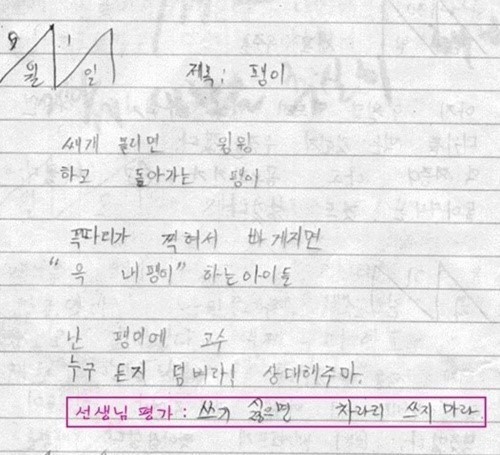 8 1
월 일 제목: 팽이
쌔게 돌리면 윙윙
하고 돌아가는 팽이
꼭따리가 찍혀서 빠게지면
"윽 내팽이" 하는아이들
난 팽이에 고수
누구 든지 덤벼라! 상대해주마.
선생님 평가 : 쓰기 싫으면 차라리 쓰지 마라.